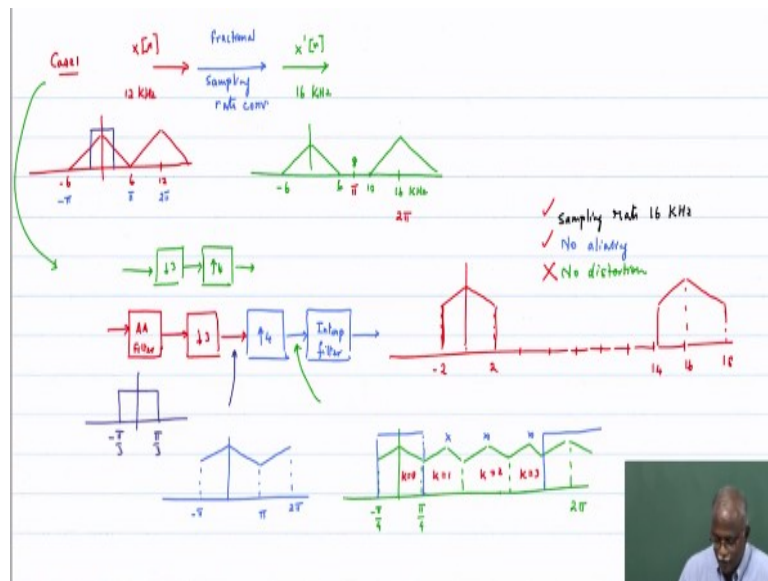 Case1 x[n] Fractional x'[n]
12 KHz Sampling rate conv 16 KHz
-6 6 12
-π π 2π
-6 6 π 10 16 KHz
2π
✓ Sampling rate 16 KHz
✓ No
✗ No distortion
↓3
AA filter ↓3 ↑4 Interp filter
-2 2 14 16 18
-π/3 π/3
-π π 2π
k=0 k=1 k=2 k=3
-π/4 π/4 2π